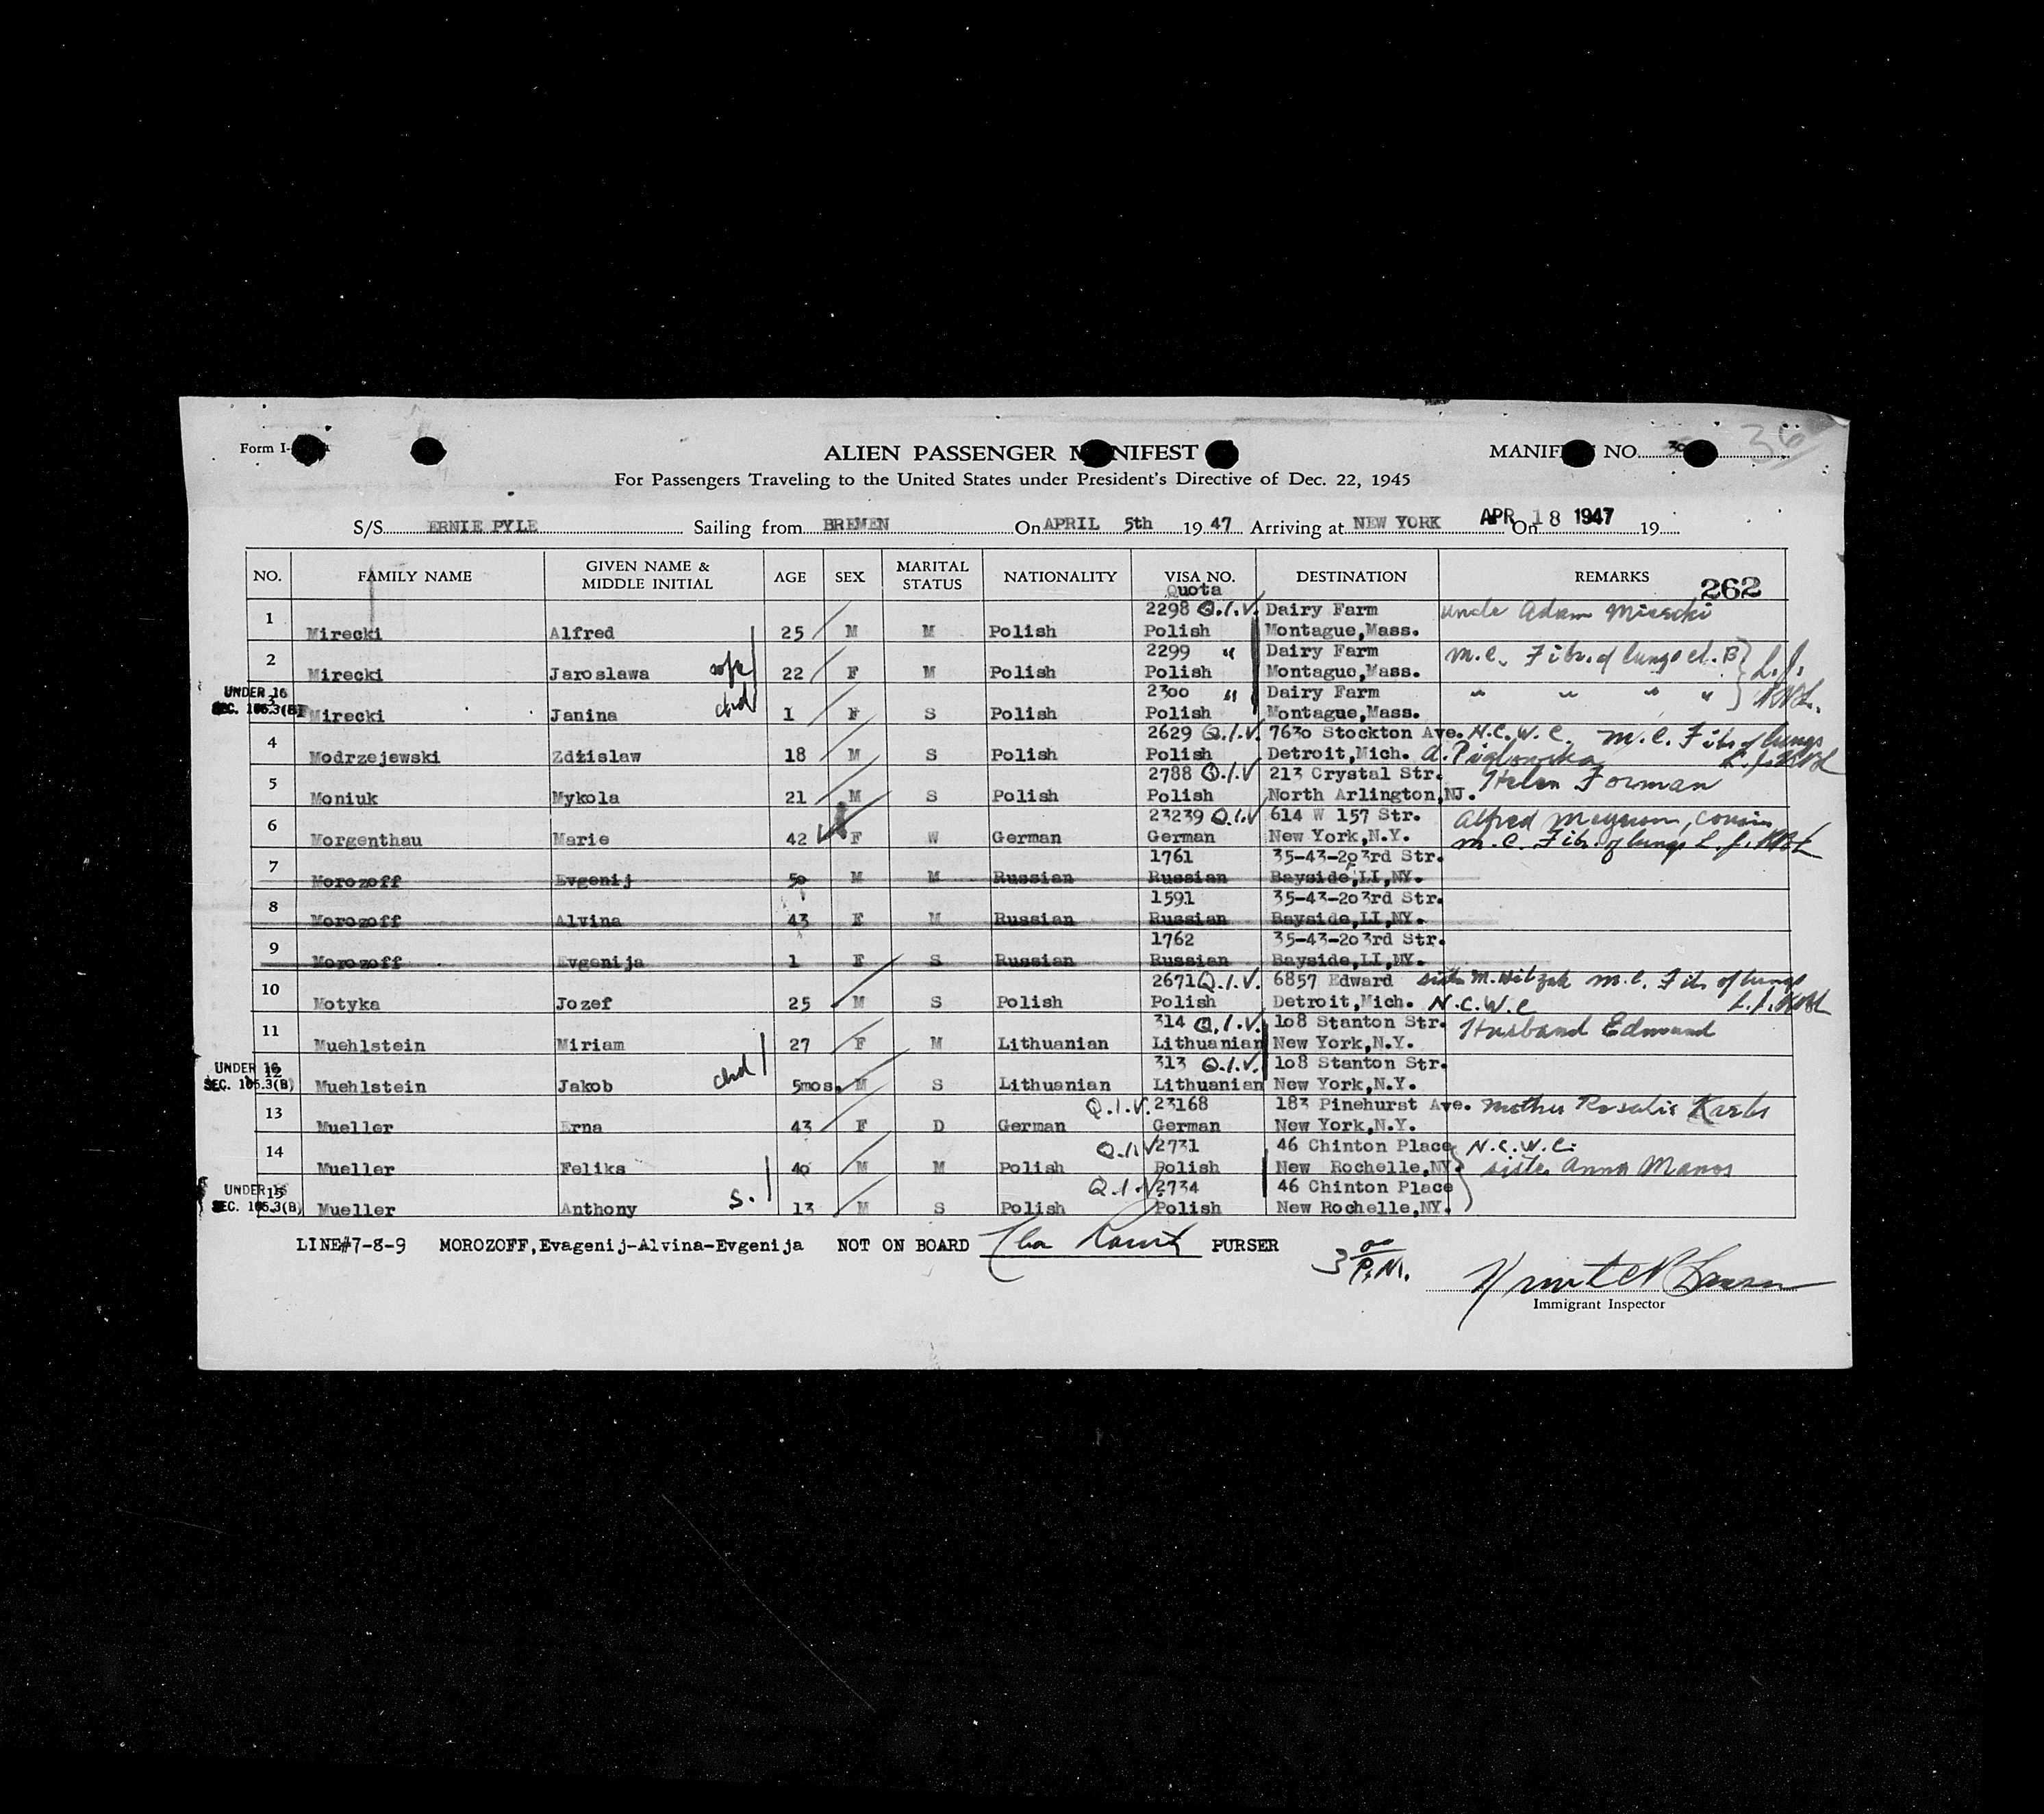 Form I-
ALIEN PASSENGER M NIFEST
MANIF NO. 30
36
For Passengers Traveling to the United States under President's Directive of Dec. 22, 1945
S/S ERNIE PYLE Sailing from BREMEN On APRIL 5th 1947 Arriving at NEW YORK On APR 18 1947 19
NO. FAMILY NAME GIVEN NAME & MIDDLE INITIAL AGE SEX MARITAL STATUS NATIONALITY VISA NO. Quota DESTINATION REMARKS 262
2298 Q.I.V. Dairy Farm Uncle Adam Mirecki
1 Mirecki Alfred 25 M M Polish Polish Montague,Mass.
2299 " Dairy Farm M.C. Fibr. of lungs cl. B L.J.
2 Mirecki Jaroslawa wife 22 F M Polish Polish Montague,Mass.
UNDER 16 2300 " Dairy Farm " " " "
SEC. 105.3(B) 3 Mirecki Janina chd 1 F S Polish Polish Montague,Mass.
2629 Q.I.V. 7630 Stockton Ave. N.C.W.C. M.C. Fibr of lungs
4 Modrzejewski Zdzislaw 18 M S Polish Polish Detroit,Mich.
2788 Q.I.V 213 Crystal Str. Helen Forman
5 Moniuk Mykola 21 M S Polish Polish North Arlington,NJ.
23239 Q.I.V 614 W 157 Str. Alfred cousin
6 Morgenthau Marie 42 F W German German New York,N.Y. M.C. Fibr. of lungs L.J.
1761 35-43-203rd Str.
7 Morozoff Evgenij 50 M M Russian Russian Bayside,LI,NY.
1591 35-43-203rd Str.
8 Morozoff Alvina 43 F M Russian Russian Bayside,LI,NY.
1762 35-43-203rd Str.
9 Morozoff Evgenija 1 F S Russian Russian Bayside,LI,NY.
2671 Q.I.V. 6857 Edward sister M. M.C. Fib of lungs
10 Motyka Jozef 25 M S Polish Polish Detroit,Mich. N.C.W.C L.J.
314 Q.I.V. 108 Stanton Str. Husband Edmund
11 Muehlstein Miriam 27 F M Lithuanian Lithuanian New York,N.Y.
UNDER 16 313 Q.I.V. 108 Stanton Str.
SEC. 105.3(B) 12 Muehlstein Jakob chd 5mos. M S Lithuanian Lithuanian New York,N.Y.
Q.I.V. 23168 183 Pinehurst Ave. Mother Rosalie Krebs
13 Mueller Erna 43 F D German German New York,N.Y.
Q.I.V 2731 46 Chinton Place N.C.W.C.
14 Mueller Feliks 40 M M Polish Polish New Rochelle,NY. sister Anna Manos
UNDER 16 Q.I.V. 2734 46 Chinton Place
SEC. 105.3(B) 15 Mueller Anthony S. 13 M S Polish Polish New Rochelle,NY.
LINE#7-8-9 MOROZOFF,Evagenij-Alvina-Evgenija NOT ON BOARD PURSER
3 00 P.M.
Immigrant Inspector